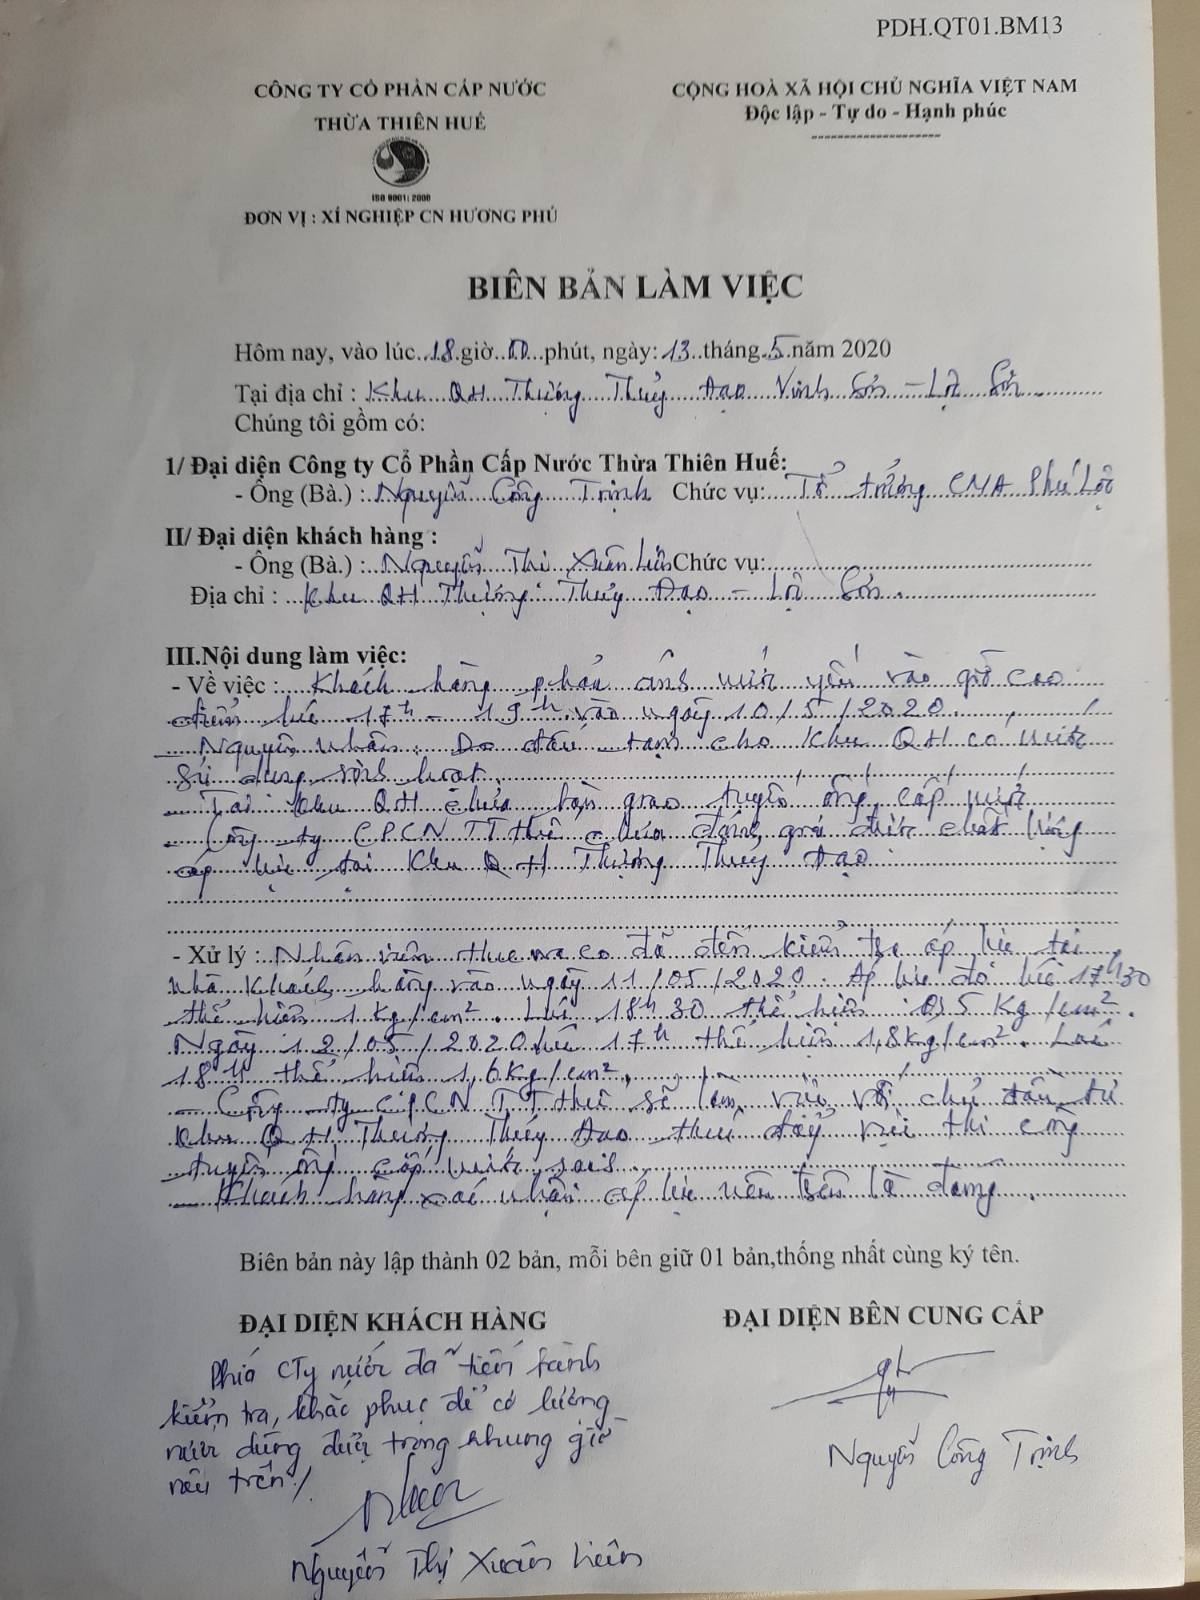 PDH.QT01.BM13
CÔNG TY CỔ PHẦN CẤP NƯỚC
THỪA THIÊN HUẾ
ISO 9001: 2000
ĐƠN VỊ : XÍ NGHIỆP CN HƯƠNG PHÚ
CỘNG HOÀ XÃ HỘI CHỦ NGHĨA VIỆT NAM
Độc lập - Tự do - Hạnh phúc
BIÊN BẢN LÀM VIỆC
Hôm nay, vào lúc 18 giờ 00 phút, ngày: 13 tháng 5 năm 2020
Tại địa chỉ : Khu QH Thượng Thủy Đạo Vinh Sơn - Lộc Sơn
Chúng tôi gồm có:
1/ Đại diện Công ty Cổ Phần Cấp Nước Thừa Thiên Huế:
- Ông (Bà.) : Nguyễn Công Trịnh Chức vụ: Tổ trưởng CNA Phú Lộc
II/ Đại diện khách hàng :
- Ông (Bà.) : Nguyễn Thị Xuân Liên Chức vụ:
Địa chỉ : Khu QH Thượng Thủy Đạo - Lộc Sơn.
III.Nội dung làm việc:
- Về việc : Khách hàng phản ánh nước yếu vào giờ cao
điểm lúc 17h - 19h vào ngày 10/5/2020.
Nguyên nhân: Do đấu tạm cho Khu QH có nước
sử dụng sinh hoạt.
- Tại Khu QH chưa bàn giao tuyến ống cấp nước
- Công ty CPCN TT Huế chưa đánh giá được chất lượng
áp lực tại Khu QH Thượng Thủy Đạo.
- Xử lý : Nhân viên Huewaco đã đến kiểm tra áp lực tại
nhà khách hàng vào ngày 11/05/2020. Áp lực đo lúc 17h30
thể hiện 1 Kg/cm². Lúc 18h30 thể hiện 0,5 Kg/cm².
Ngày 12/05/2020 lúc 17h thể hiện 1,8kg/cm². Lúc
18h thể hiện 1,6Kg/cm².
- Công ty CPCN TT Huế sẽ làm việc với chủ đầu tư
Khu QH Thượng Thủy Đạo thúc đẩy việc thi công
tuyến ống cấp nước
- Khách hàng xác nhận áp lực nêu trên là đúng.
Biên bản này lập thành 02 bản, mỗi bên giữ 01 bản,thống nhất cùng ký tên.
ĐẠI DIỆN KHÁCH HÀNG
Phía CTy nước đã tiến hành
kiểm tra, khắc phục để có lượng
nước dùng được trong khung giờ
nêu trên./
Nguyễn Thị Xuân Liên
ĐẠI DIỆN BÊN CUNG CẤP
Nguyễn Công Trịnh